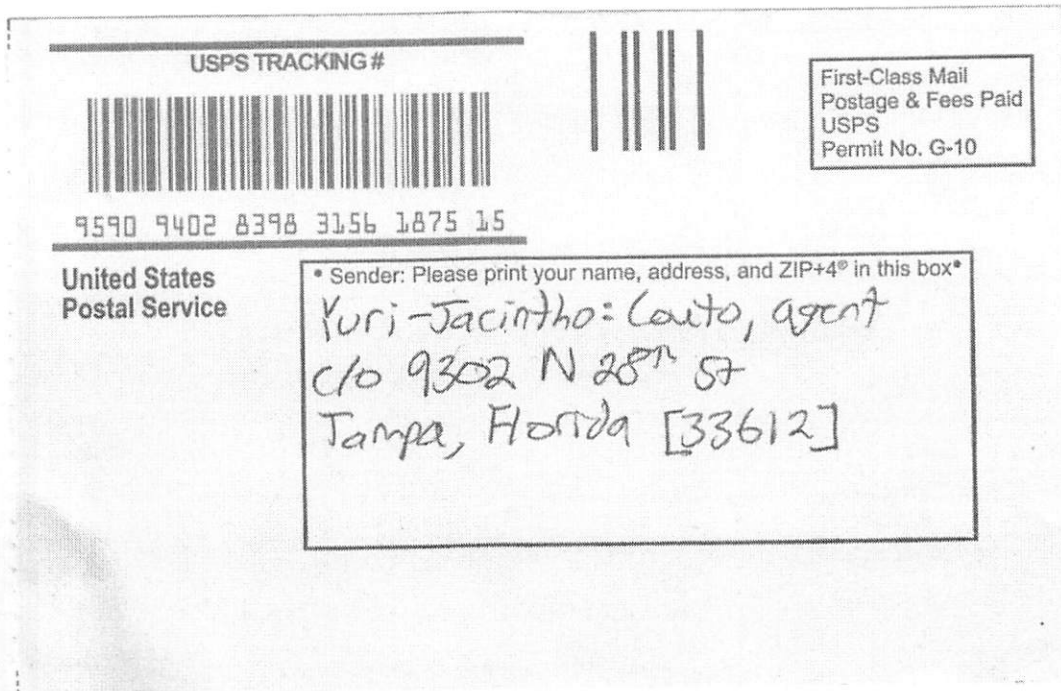 USPS TRACKING #
9590 9402 8398 3156 1875 15
First-Class Mail
Postage & Fees Paid
USPS
Permit No. G-10
United States
Postal Service
• Sender: Please print your name, address, and ZIP+4® in this box•
Yuri-Jacintho: Couto, agent
c/o 9302 N 28th St
Tampa, Florida [33612]